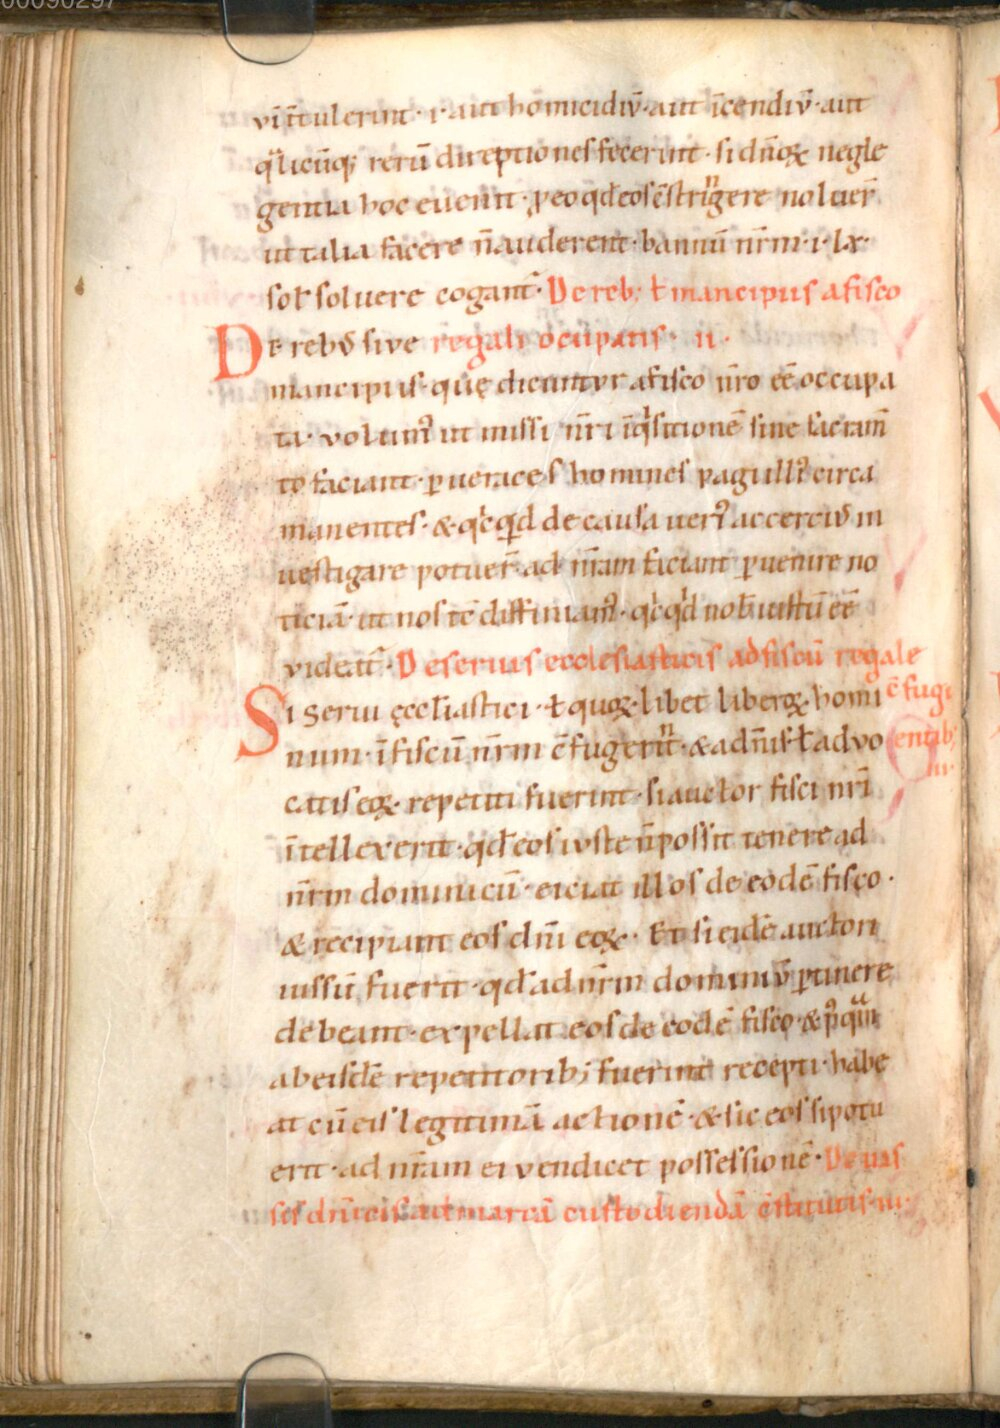 00090297
vī t̄tulerint · i · aut homicidiū · aut īcendiū · aut
qͣlicūq; rerū direptiones fecerint · si dn̄oꝝ negle
gentia hoc euenit · ꝓ eo qd̄ eos c̄strıⁿgere noluer̄
ut talia facere n̄ auderent · bannū nr̄m · i · lx ·
sol̄ soluere cogant᷑ · De reb; ł mancipiis a fisco
De rebꝰ siue regali ocupatis · ii ·
mancipiis · quę dicuntur a fisco nr̄o eē occupa
ta · volumꝰ ut missi nr̄i īqͥsitionē sine sacram̄
to faciant · ꝑ ueraces homines pagi illiꝰ circa
manentes · & qͥcqͥd de causa uerꝰ accerciꝰ in
uestigare potuer̄ · ad nr̄am faciant ꝑuenire no
ticiā · ut nos tc̄ diffiniamꝰ · qͥcqͥd nob̄ iustū eē
videat᷑ · De seruis ecclesiasticis ad fiscū regale
Si serui ęccl̄iastici · ł quoꝝ · libet liberoꝝ · homi c̄fugi
num · ī fiscū nr̄m c̄fugerıⁿt · & a dn̄is ł advo entib;
catis eoꝝ · repetiti fuerint · si auctor fisci nr̄i iii ·
ītellexerit · qd̄ eos iuste n̄ possit tenere ad
nr̄m dominicū · eiciat illos de eodē fisco ·
& recipiant eos dn̄i eoꝝ · Et si eidē auctori
iussū fuerit · qd̄ ad nr̄m dominiū ꝑtinere
debeant · expellat eos de eodē fisco · & pꝰqͣm
ab eisdē repetitorib; fuerint recepti · habe
at cū eis legitimā actionē · & sic eos si potu
erit · ad nr̄am ei vendicet possessionē · De uas
sis dn̄icis ad marcā custodiendā c̄stitutis · iiii ·